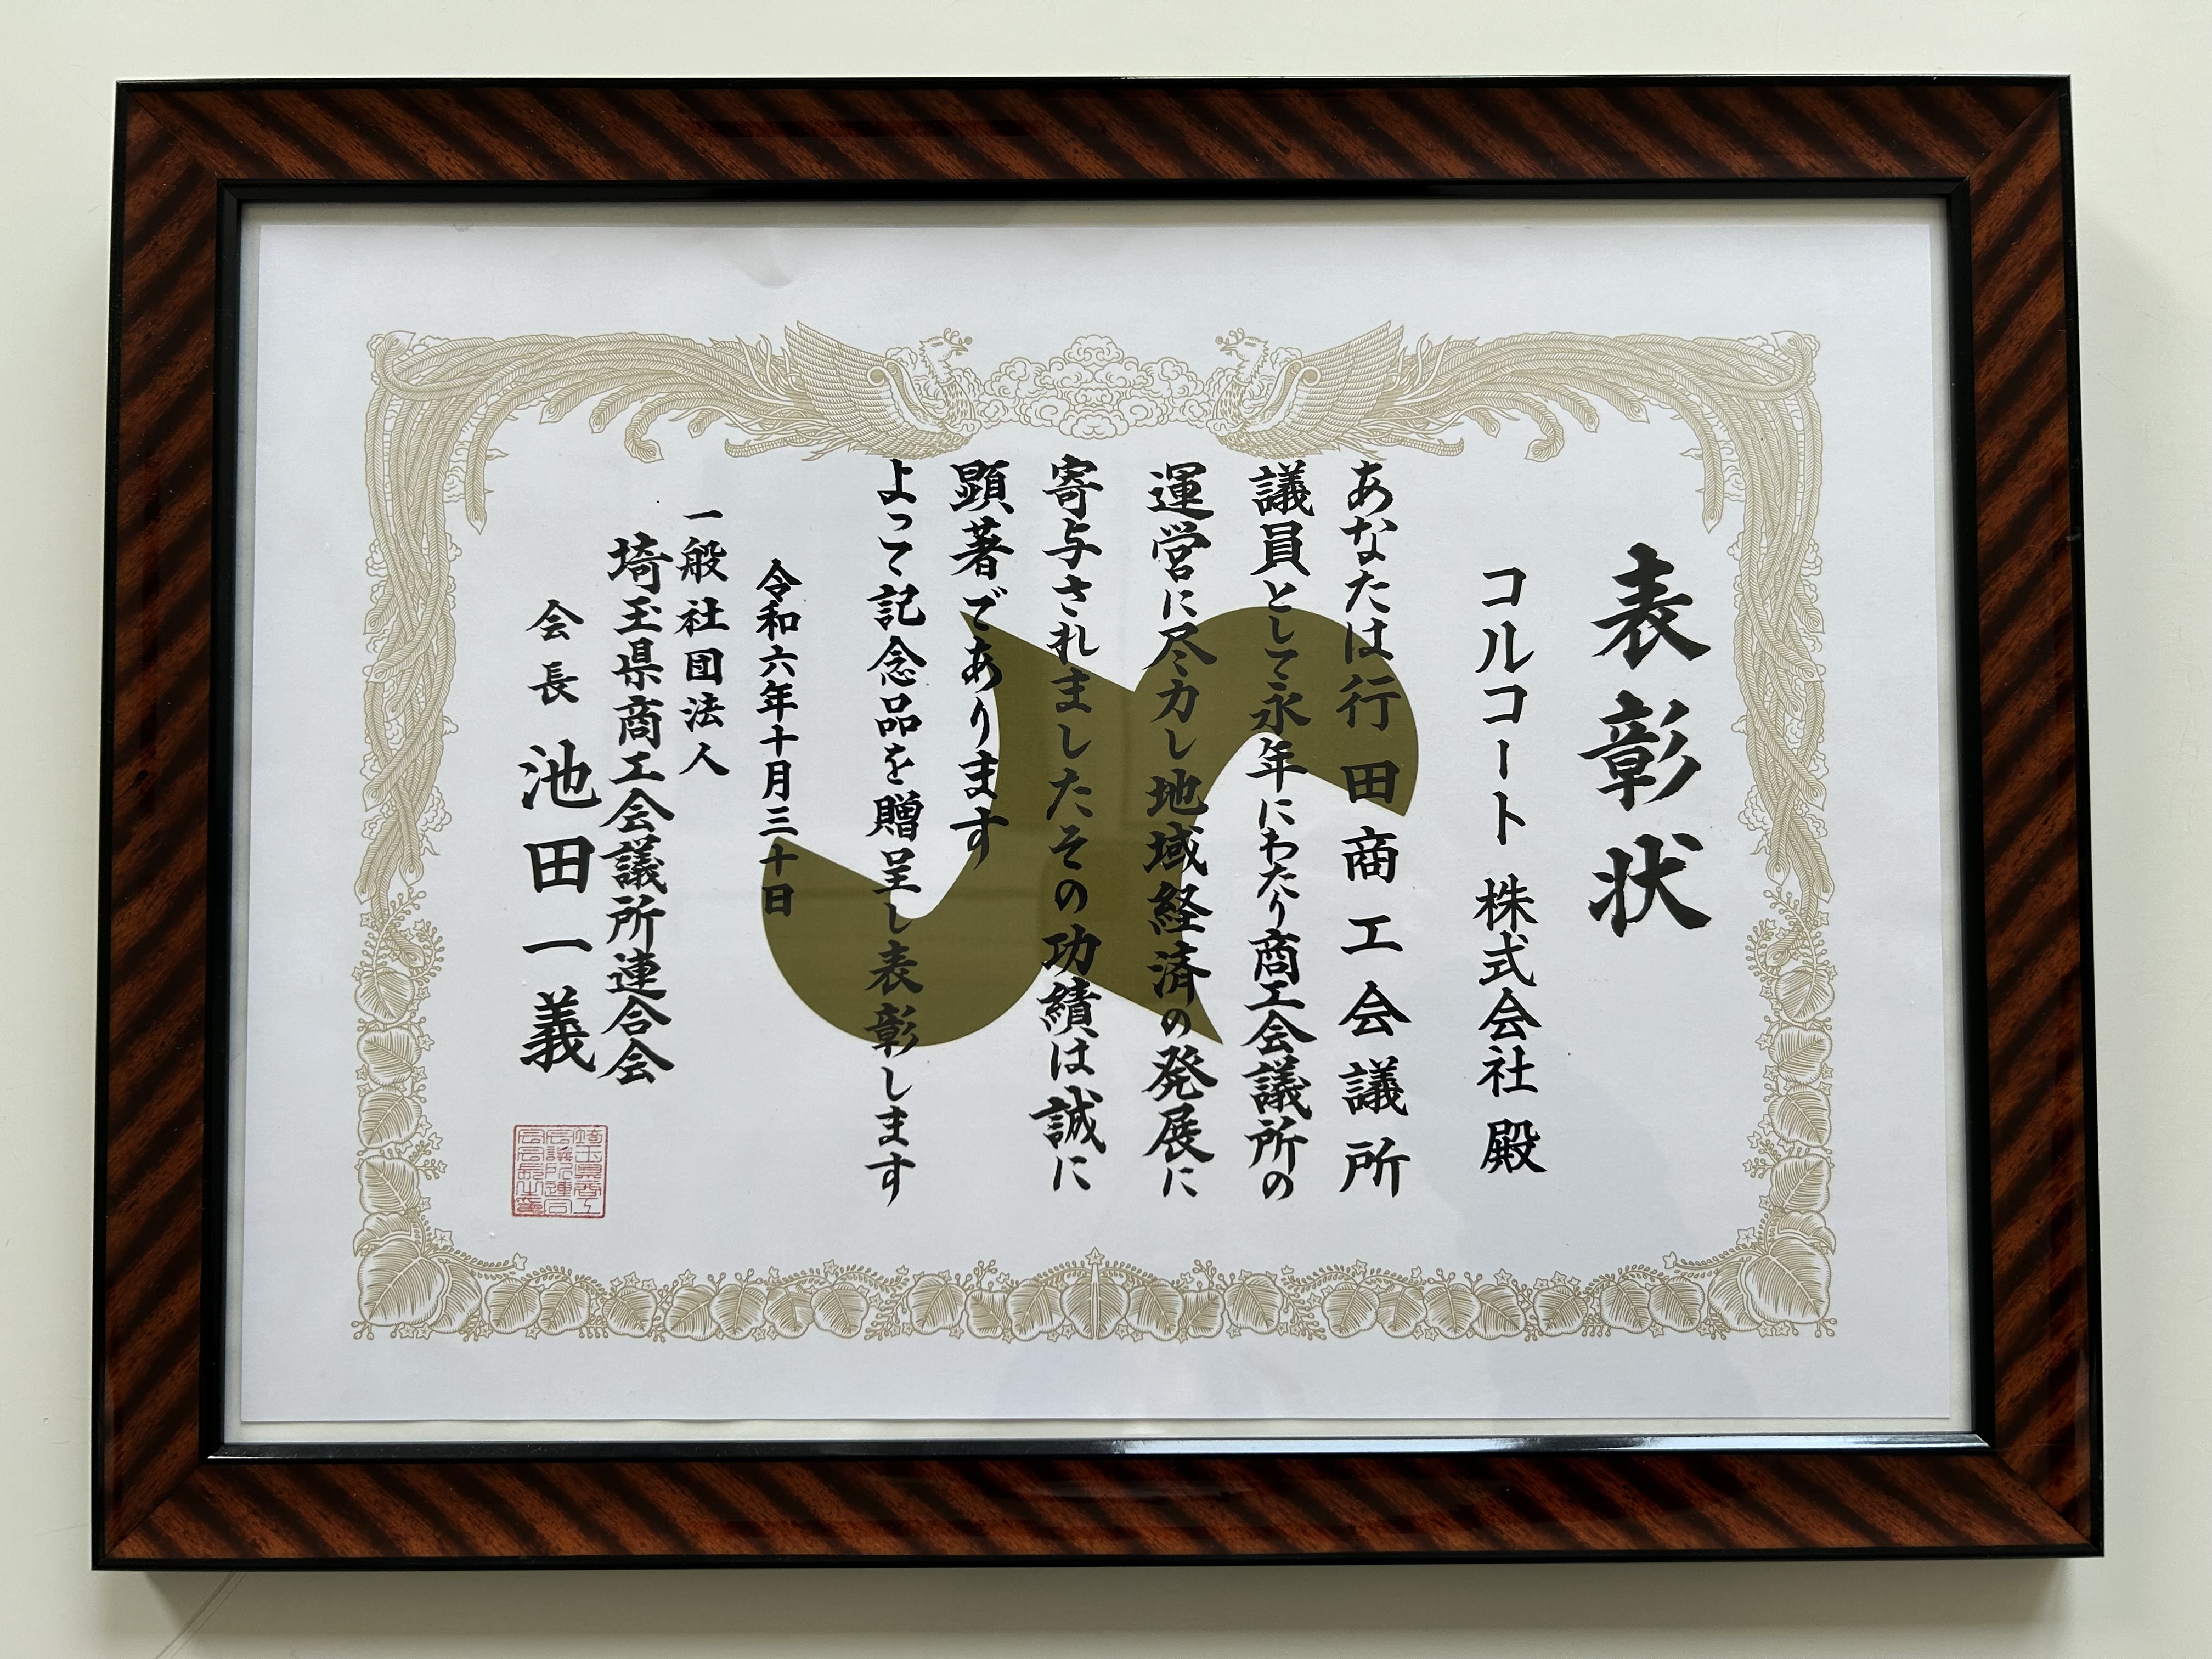 表彰状
コルコート 株式会社 殿
あなたは行田商工会議所
議員として永年にわたり商工会議所の
運営に尽力し地域経済の発展に
寄与されましたその功績は誠に
顕著であります
よって記念品を贈呈し表彰します
令和六年十月三十日
一般社団法人
埼玉県商工会議所連合会
会長 池田一義